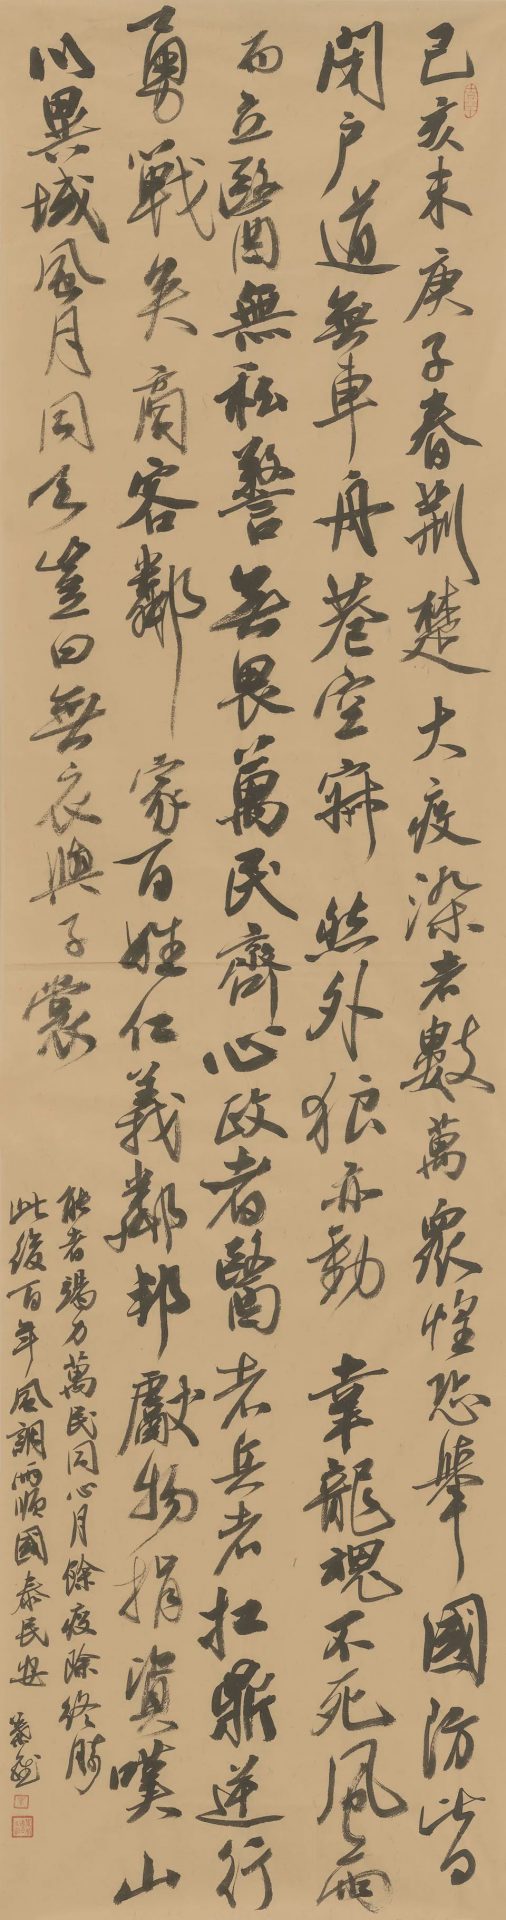 己亥末庚子春荊楚大疫染者數萬眾惶恐舉國防皆
閉户道無車舟巷空寂然外狼亦動幸龍魂不死風雨
而立醫無私警無畏萬民齊心政者醫者兵者扛鼎逆行
勇戰矣商客鄰家百姓仁義鄰邦獻物捐資嘆山
川異域風月同天豈曰無衣與子裳
能者竭力萬民同心月餘疫除終勝
此後百年風調雨順國泰民安